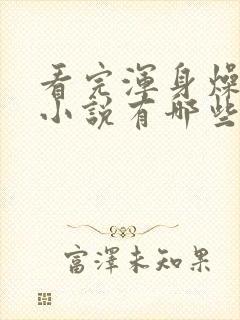 看完渾身燥
小說有哪些
富澤未知果